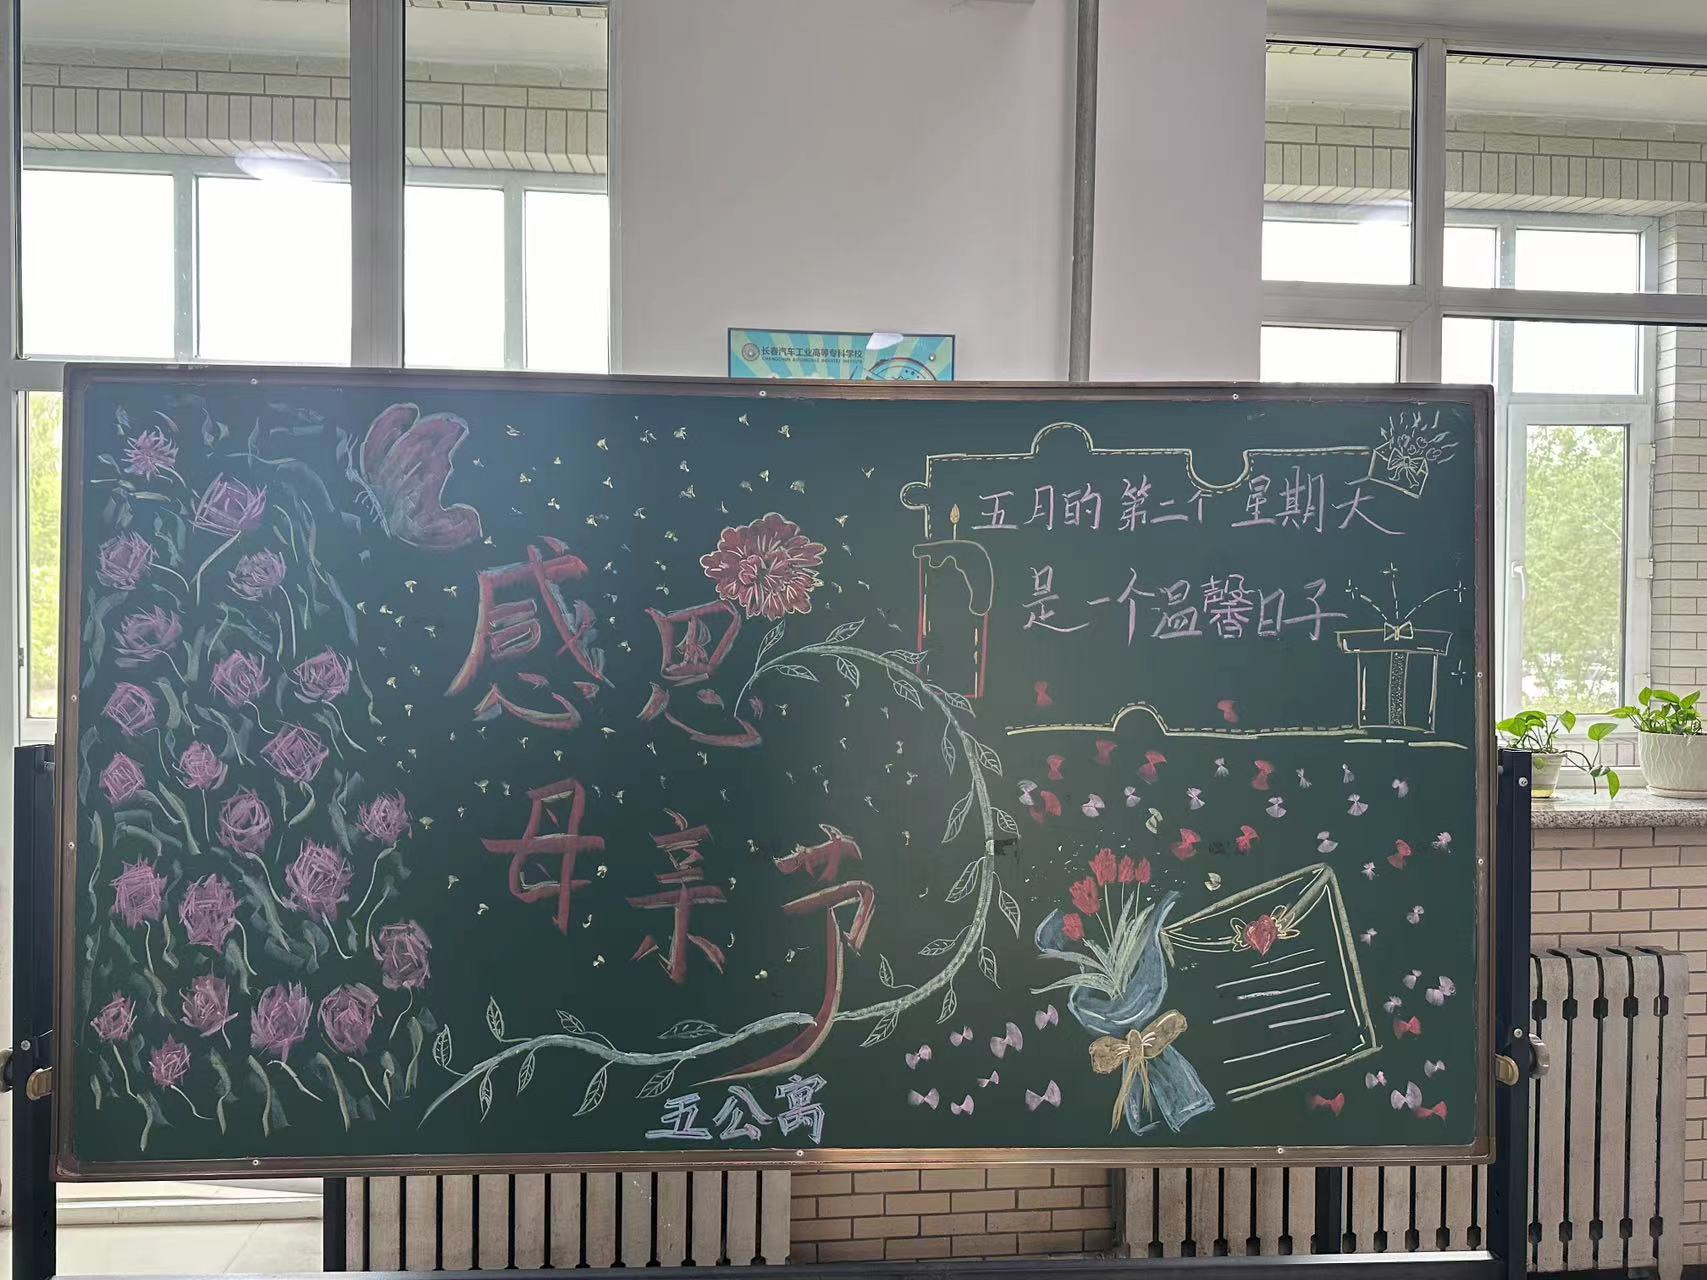 长春汽车工业高等专科学校
CHANGCHUN AUTOMOBILE INDUSTRY INSTITUTE
感恩
母亲节
五月的第二个星期天
是一个温馨日子
五公寓